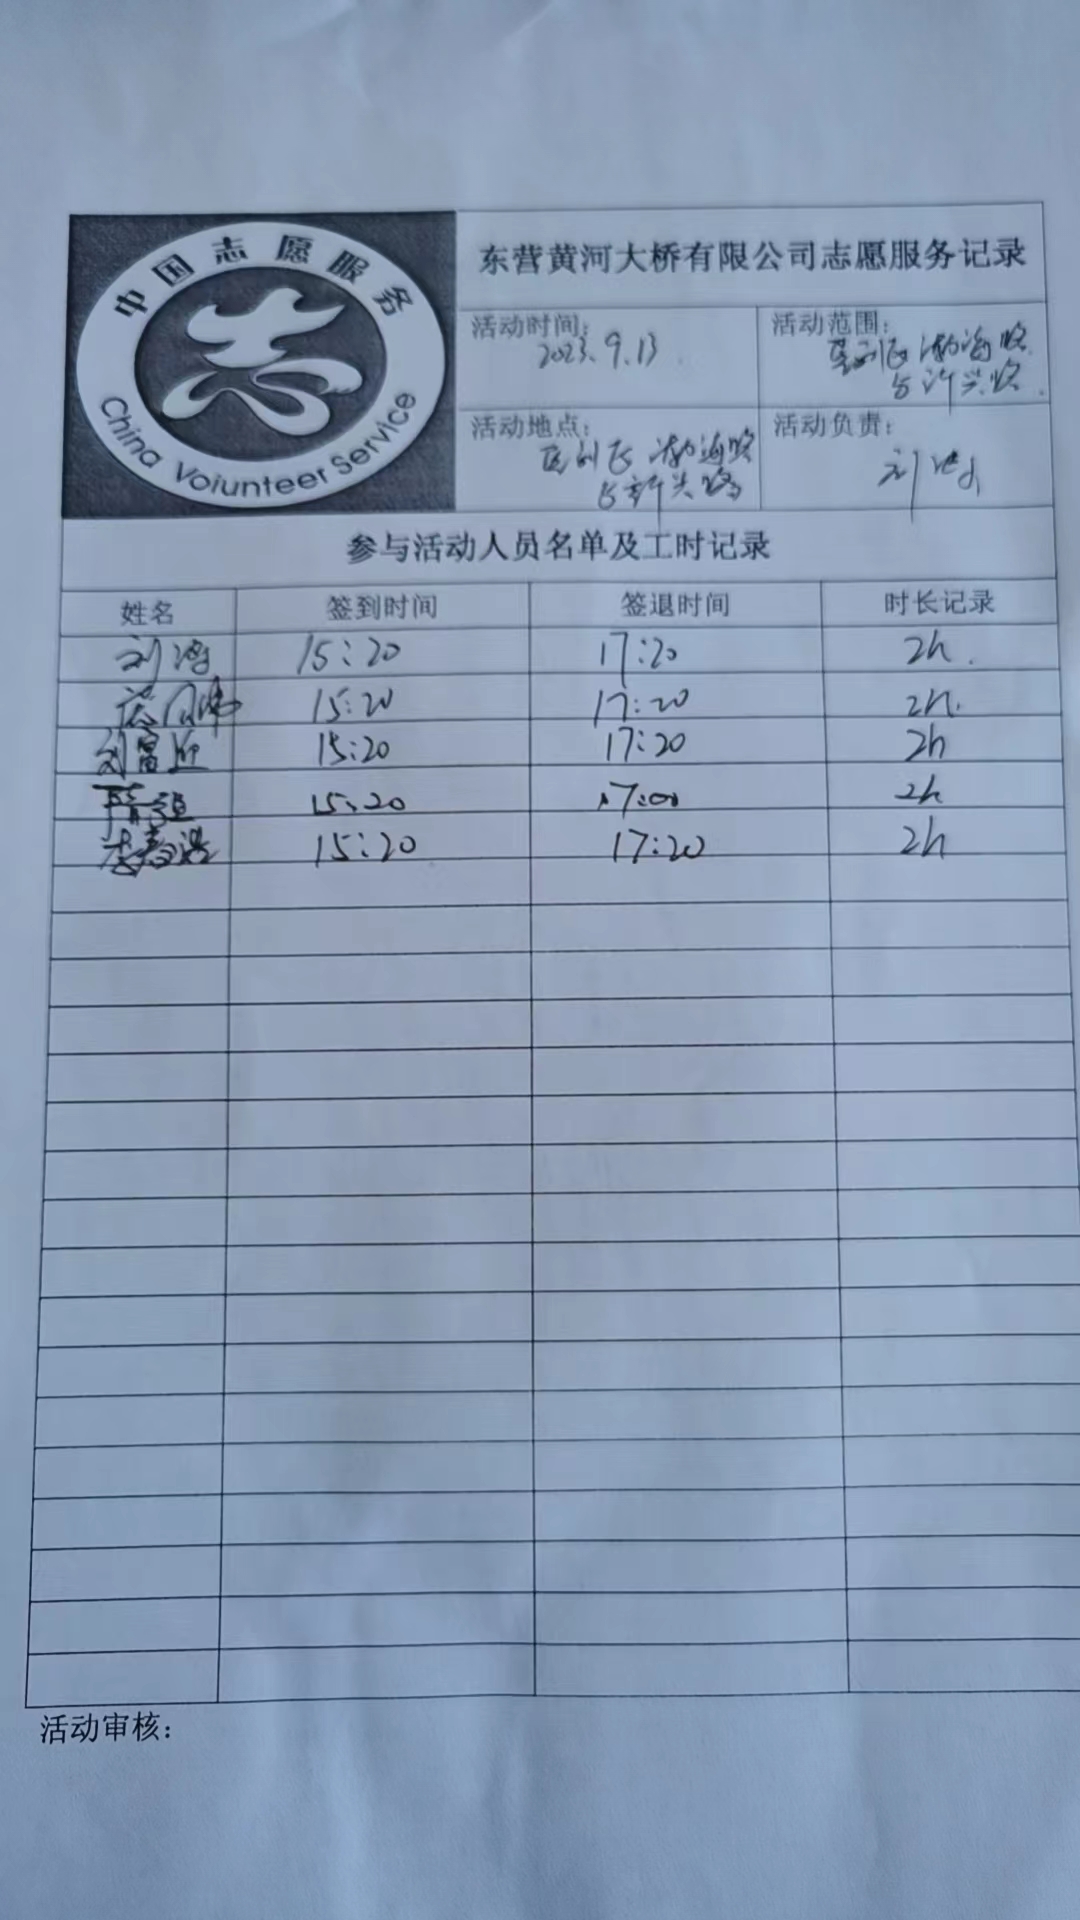 中国志愿服务
China Voiunteer Service
东营黄河大桥有限公司志愿服务记录
活动时间:
2023.9.13
活动范围:
渤海路
与 兴路.
活动地点:
渤海路
与新兴路
活动负责:
刘
参与活动人员名单及工时记录
姓名 签到时间 签退时间 时长记录
刘涛 15:20 17:20 2h.
15:20 17:20 2h.
刘富 15:20 17:20 2h
隋 15:20 17:00 2h
李春 15:20 17:20 2h
活动审核: